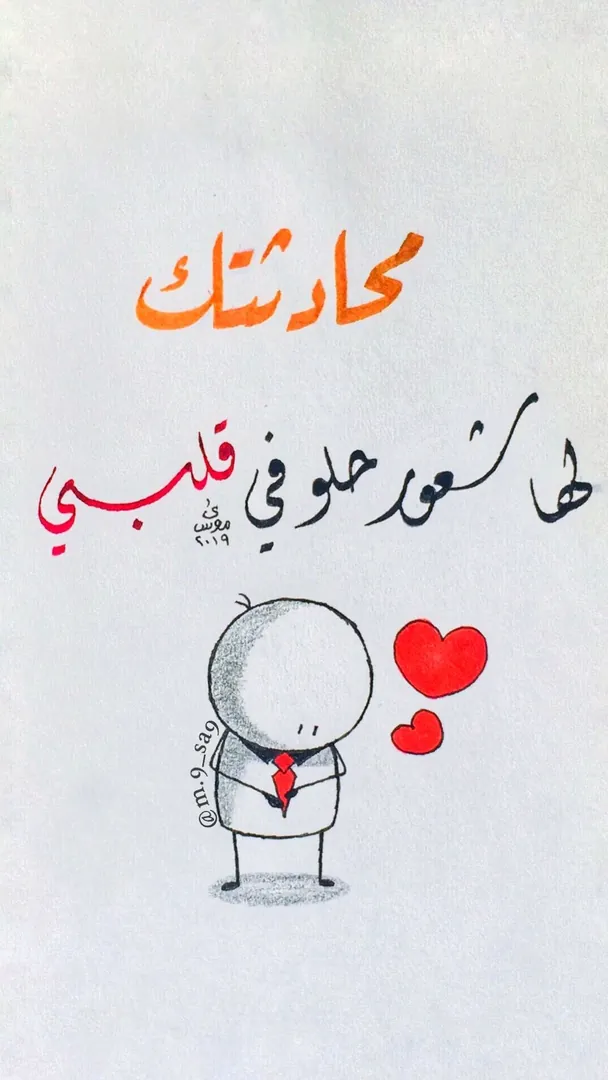 محادثتك
لها شعور حلو في قلبي
موسى
٢٠١٩
@m.9_sa9